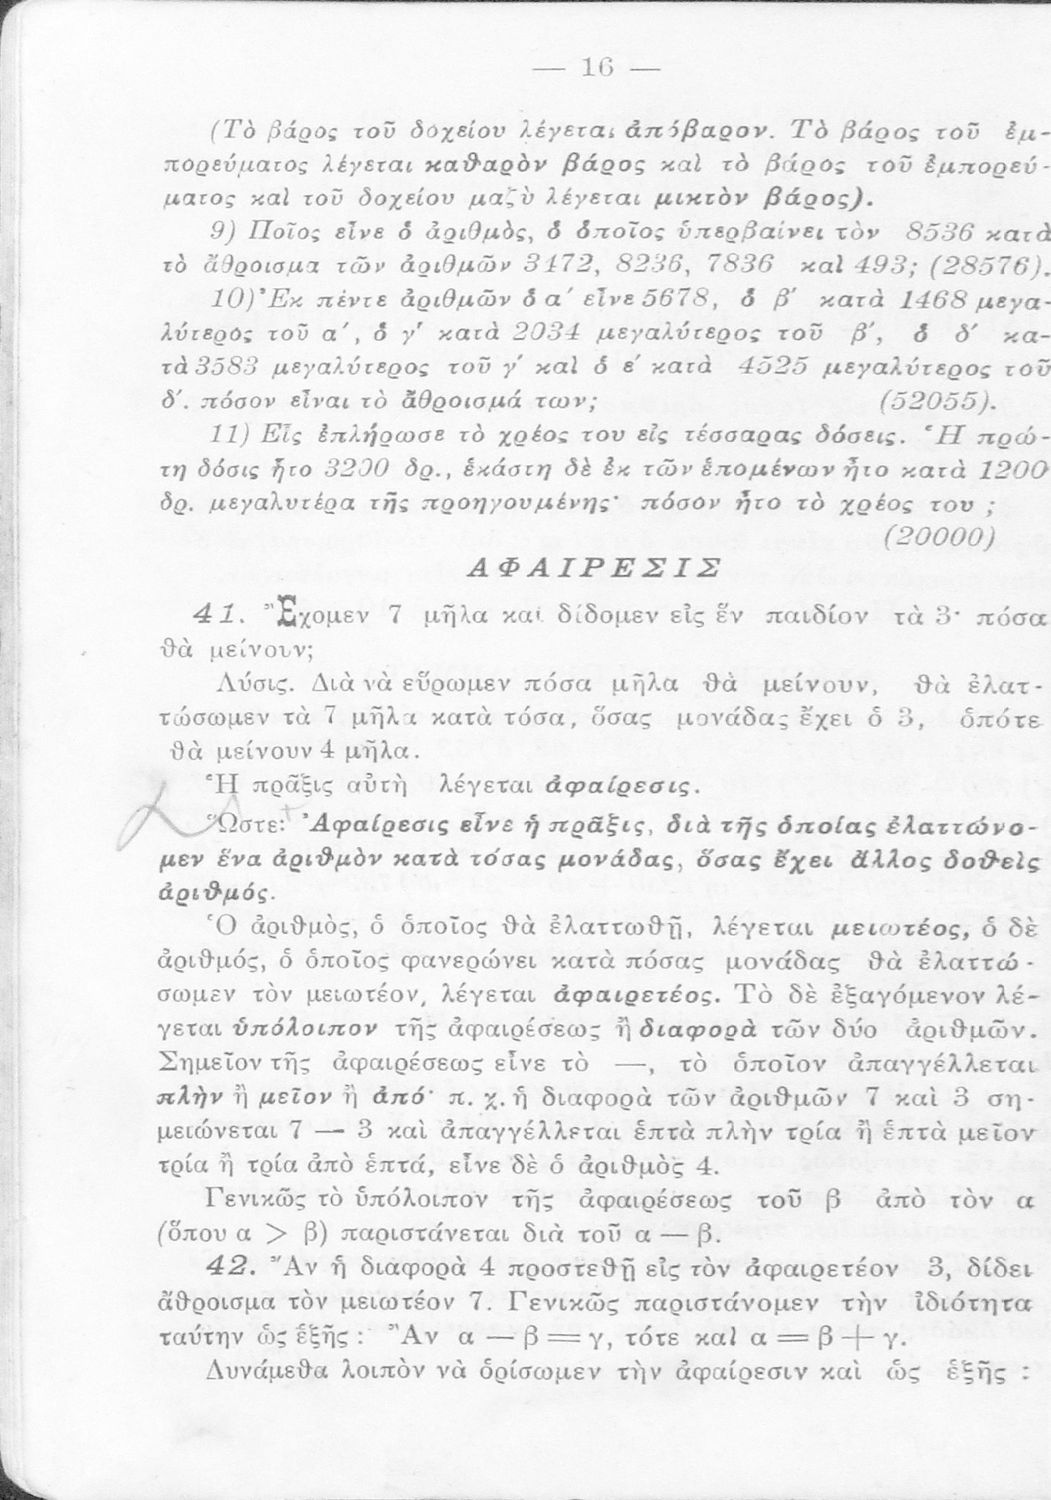 — 16 —
(Τὸ βάρος τοῦ δοχείου λέγεται ἀπόβαρον. Τὸ βάρος τοῦ ἐμ-
πορεύματος λέγεται καθαρὸν βάρος καὶ τὸ βάρος τοῦ ἐμπορεύ-
ματος καὶ τοῦ δοχείου μαζὺ λέγεται μικτὸν βάρος).
9) Ποῖος εἶνε ὁ ἀριθμὸς, ὁ ὁποῖος ὑπερβαίνει τὸν 8536 κατὰ
τὸ ἄθροισμα τῶν ἀριθμῶν 3472, 8236, 7836 καὶ 493; (28576).
10) Ἐκ πέντε ἀριθμῶν ὁ α΄ εἶνε 5678, ὁ β΄ κατὰ 1468 μεγα-
λύτερος τοῦ α΄, ὁ γ΄ κατὰ 2034 μεγαλύτερος τοῦ β΄, ὁ δ΄ κα-
τὰ 3583 μεγαλύτερος τοῦ γ΄ καὶ ὁ ε΄ κατὰ 4525 μεγαλύτερος τοῦ
δ΄. πόσον εἶναι τὸ ἄθροισμά των; (52055).
11) Εἷς ἐπλήρωσε τὸ χρέος του εἰς τέσσαρας δόσεις. Ἡ πρώ-
τη δόσις ἦτο 3200 δρ., ἑκάστη δὲ ἐκ τῶν ἑπομένων ἦτο κατὰ 1200
δρ. μεγαλυτέρα τῆς προηγουμένης· πόσον ἦτο τὸ χρέος του ;
(20000)
ΑΦΑΙΡΕΣΙΣ
41. Ἔχομεν 7 μῆλα καὶ δίδομεν εἰς ἕν παιδίον τὰ 3· πόσα
θὰ μείνουν;
Λύσις. Διὰ νὰ εὕρωμεν πόσα μῆλα θὰ μείνουν, θὰ ἐλατ-
τώσωμεν τὰ 7 μῆλα κατὰ τόσα, ὅσας μονάδας ἔχει ὁ 3, ὁπότε
θὰ μείνουν 4 μῆλα.
Ἡ πρᾶξις αὐτὴ λέγεται ἀφαίρεσις.
Ὥστε: Ἀφαίρεσις εἶνε ἡ πρᾶξις, διὰ τῆς ὁποίας ἐλαττώνο-
μεν ἕνα ἀριθμὸν κατὰ τόσας μονάδας, ὅσας ἔχει ἄλλος δοθεὶς
ἀριθμός.
Ὁ ἀριθμὸς, ὁ ὁποῖος θὰ ἐλαττωθῇ, λέγεται μειωτέος, ὁ δὲ
ἀριθμός, ὁ ὁποῖος φανερώνει κατὰ πόσας μονάδας θὰ ἐλαττώ-
σωμεν τὸν μειωτέον, λέγεται ἀφαιρετέος. Τὸ δὲ ἐξαγόμενον λέ-
γεται ὑπόλοιπον τῆς ἀφαιρέσεως ἢ διαφορὰ τῶν δύο ἀριθμῶν.
Σημεῖον τῆς ἀφαιρέσεως εἶνε τὸ —, τὸ ὁποῖον ἀπαγγέλλεται
πλὴν ἢ μεῖον ἢ ἀπό· π. χ. ἡ διαφορὰ τῶν ἀριθμῶν 7 καὶ 3 ση-
μειώνεται 7 — 3 καὶ ἀπαγγέλλεται ἑπτὰ πλὴν τρία ἢ ἑπτὰ μεῖον
τρία ἢ τρία ἀπὸ ἑπτά, εἶνε δὲ ὁ ἀριθμὸς 4.
Γενικῶς τὸ ὑπόλοιπον τῆς ἀφαιρέσεως τοῦ β ἀπὸ τὸν α
(ὅπου α > β) παριστάνεται διὰ τοῦ α — β.
42. Ἂν ἡ διαφορὰ 4 προστεθῇ εἰς τὸν ἀφαιρετέον 3, δίδει
ἄθροισμα τὸν μειωτέον 7. Γενικῶς παριστάνομεν τὴν ἰδιότητα
ταύτην ὡς ἑξῆς : Ἂν α — β = γ, τότε καὶ α = β + γ.
Δυνάμεθα λοιπὸν νὰ ὁρίσωμεν τὴν ἀφαίρεσιν καὶ ὡς ἑξῆς :